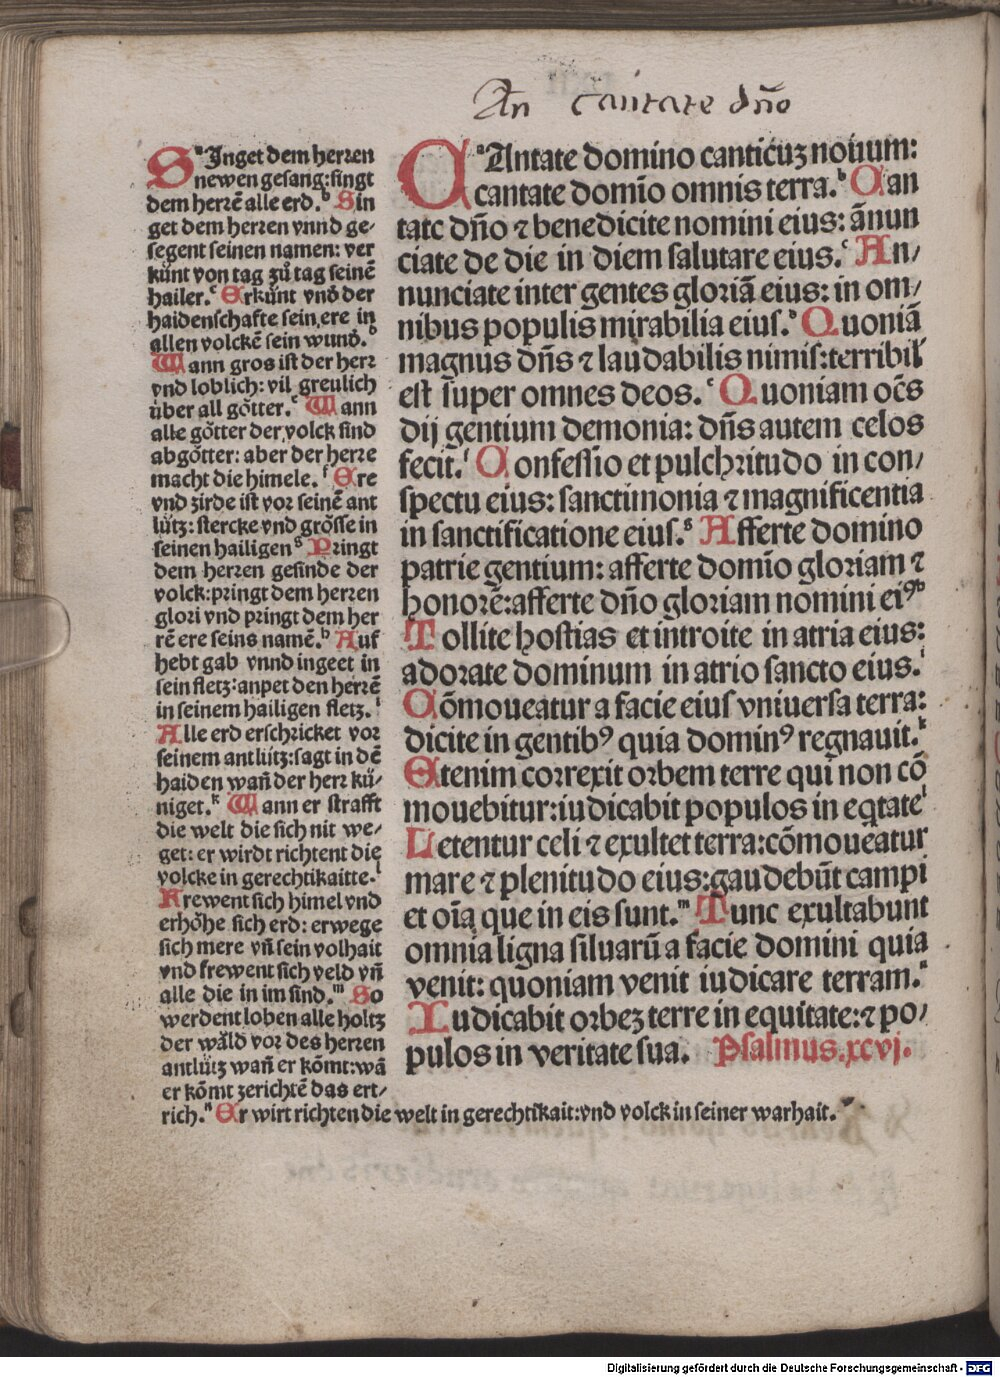 An cantate dño
SInget dem herren
newen gesang: singt
dem herrē alle erd. Sin
get dem herren vnnd ge-
segent seinen namen: ver
künt von tag zů tag seinē
hailer. Erkünt vnd der
haidenschafte sein ere in
allen volckē sein wund.
Wann gros ist der herr
vnd loblich: vil greulich
über all götter. Wann
alle götter der volck sind
abgötter: aber der herre
macht die himele. Ere
vnd zirde ist vor seinē ant
lütz: stercke vnd grösse in
seinen hailigen Pringt
dem herren gesinde der
volck: pringt dem herren
glori vnd pringt dem her
rē ere seins namē. Auf
hebt gab vnnd ingeet in
sein fletz: anpet den herrē
in seinem hailigen fletz.
Alle erd erschricket vor
seinem antlütz: sagt in dē
haiden wañ der herr kü-
niget. Wann er strafft
die welt die sich nit we-
get: er wirdt richtent die
volcke in gerechtikaitte.
Frewent sich himel vnd
erhöhe sich erd: erwege
sich mere vñ sein volhait
vnd frewent sich veld vñ
alle die in im sind. So
werdent loben alle holtz
der wåld vor des herren
antlütz wañ er kōmt: wā
er kōmt zerichtē das ert-
rich. Er wirt richten die welt in gerechtikait: vnd volck in seiner warhait.
CAntate domino canticuʒ nouum:
cantate domīo omnis terra. Can
tate dño ⁊ benedicite nomini eius: ānun
ciate de die in diem salutare eius. An-
nunciate inter gentes gloriā eius: in om-
nibus populis mirabilia eius. Quoniā
magnus dñs ⁊ laudabilis nimis: terribil
est super omnes deos. Quoniam oēs
dij gentium demonia: dñs autem celos
fecit. Confessio et pulchritudo in con-
spectu eius: sanctimonia ⁊ magnificentia
in sanctificatione eius. Afferte domino
patrie gentium: afferte domīo gloriam ⁊
honorē: afferte dño gloriam nomini eiꝰ
Tollite hostias et introite in atria eius:
adorate dominum in atrio sancto eius.
Cōmoueatur a facie eius vniuersa terra:
dicite in gentibꝰ quia dominꝰ regnauit.
Etenim correxit orbem terre qui non cō
mouebitur: iudicabit populos in eqtate
Letentur celi ⁊ exultet terra: cōmoueatur
mare ⁊ plenitudo eius: gaudebūt campi
et oīa que in eis sunt. Tunc exultabunt
omnia ligna siluarū a facie domini quia
venit: quoniam venit iudicare terram.
Iudicabit orbeʒ terre in equitate: ⁊ po-
pulos in veritate sua. Psalmus. xcvj.
Digitalisierung gefördert durch die Deutsche Forschungsgemeinschaft - DFG